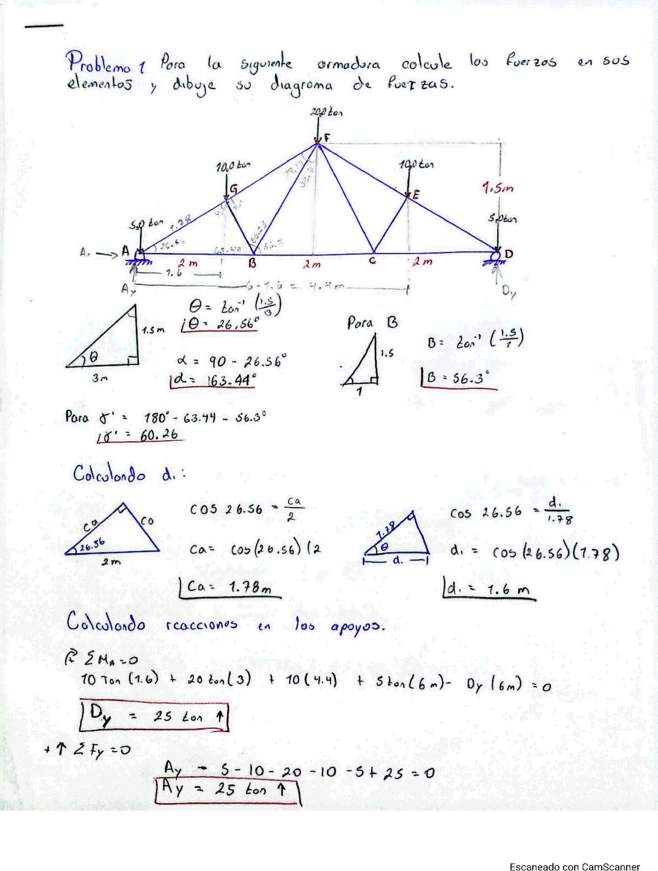 Problema 1 Para la siguiente armadura calcule las fuerzas en sus
elementos y dibuje su diagrama de fuerzas.
20,0 ton
F
10,0 ton
10,0 ton
G
E
1.5m
5,0 ton
1.78
5,0 ton
A
26.56
63.43
B
C
D
2m
2m
2m
1.6
6-1.6 = 4.4m
Ay
Dy
θ = tan⁻¹ (1.5/3)
θ = 26.56°
1.5m
θ
3m
α = 90 - 26.56°
α = 63.44°
Para B
1.5
1
B = tan⁻¹ (1.5/1)
B = 56.3°
Para γ' = 180° - 63.44 - 56.3°
γ' = 60.26
Calculando d₁:
Ca
CO
26.56
2m
COS 26.56 = Ca/2
Ca = cos(26.56)(2
Ca = 1.78m
1.78
θ
d₁
cos 26.56 = d₁/1.78
d₁ = cos (26.56)(1.78)
d₁ = 1.6 m
Calculando reacciones en los apoyos.
ΣMA=0
10 Ton (1.6) + 20 ton(3) + 10(4.4) + 5ton(6m) - Dy (6m) = 0
Dy = 25 ton ↑
+↑ ΣFy=0
Ay - 5-10-20-10-5+25=0
Ay = 25 ton ↑
Escaneado con CamScanner